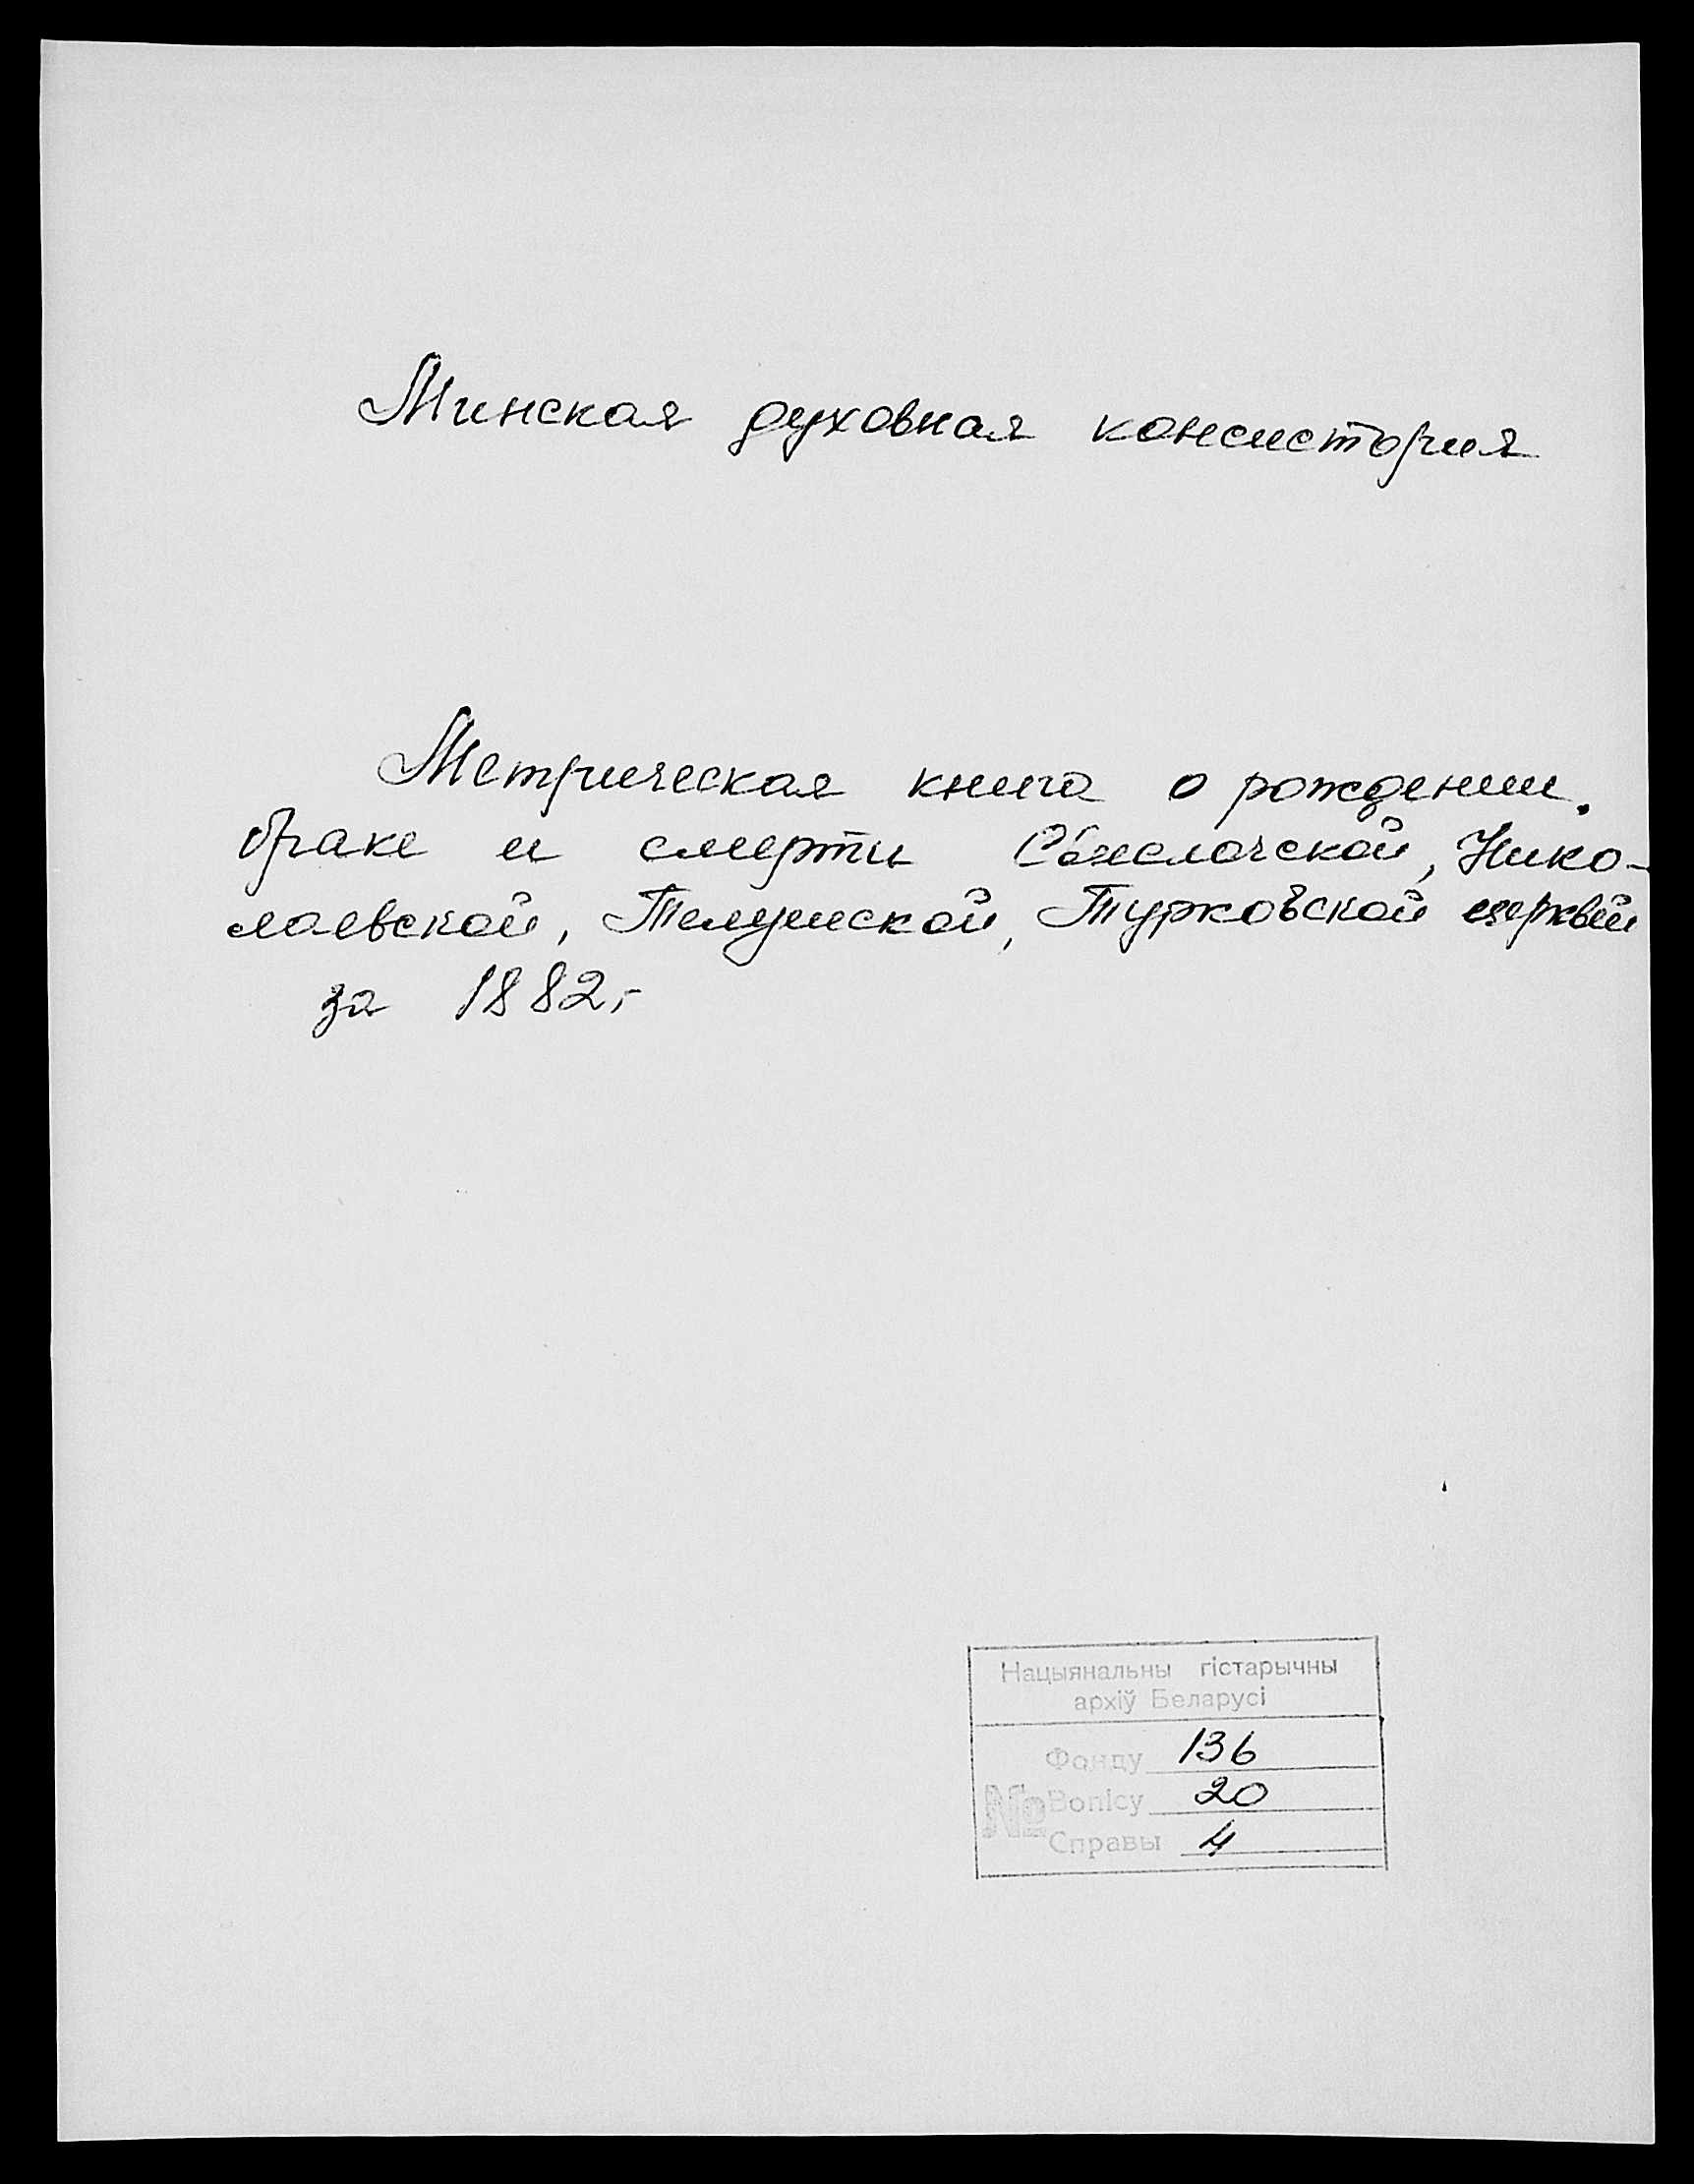 Минская духовная консистория
Метрическая книга о рождении,
браке и смерти Свислочской, Нико-
лаевской, Телушской, Турковской церквей
за 1882г
Нацыянальны гістарычны
архіў Беларусі
Фонду 136
№ Вопісу 20
Справы 4